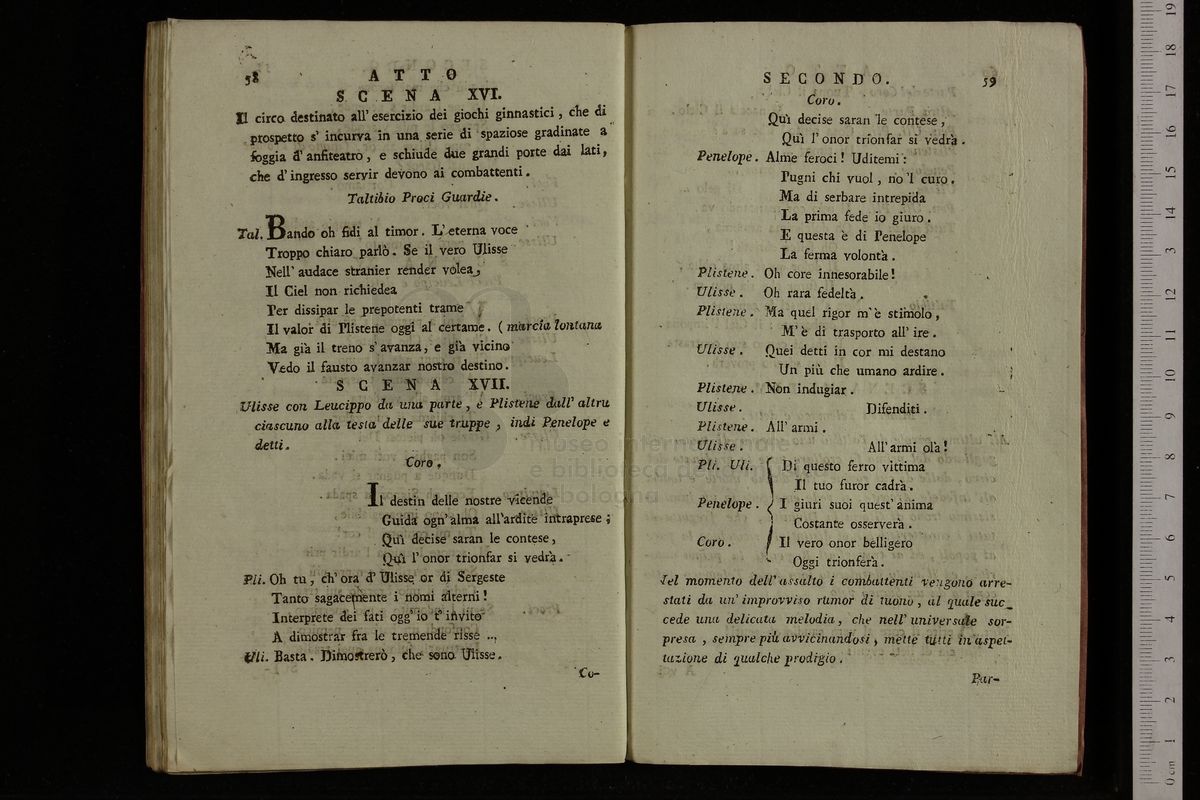 58 ATTO
SCENA XVI.
Il circo destinato all' esercizio dei giochi ginnastici, che di
prospetto s' incurva in una serie di spaziose gradinate a
foggia d' anfiteatro, e schiude due grandi porte dai lati,
che d' ingresso servir devono ai combattenti.
Taltibio Proci Guardie.
Tal. Bando oh fidi al timor. L' eterna voce
Troppo chiaro parlò. Se il vero Ulisse
Nell' audace stranier render volea,
Il Ciel non richiedea
Per dissipar le prepotenti trame
Il valor di Plistene oggi al certame. (marcia lontana
Ma già il treno s' avanza, e già vicino
Vedo il fausto avanzar nostro destino.
SCENA XVII.
Ulisse con Leucippo da una parte, e Plistene dall' altra
ciascuno alla testa delle sue truppe, indi Penelope e
detti.
Coro.
Il destin delle nostre vicende
Guida ogn' alma all'ardite intraprese;
Quì decise saran le contese,
Quì l' onor trionfar si vedrà.
Pli. Oh tu, ch' ora d' Ulisse or di Sergeste
Tanto sagacemente i nomi alterni!
Interprete dei fati ogg' io t' invito
A dimostrar fra le tremende risse ...
Uli. Basta. Dimostrerò, che sono Ulisse.
Co-
SECONDO. 59
Coro.
Quì decise saran le contese,
Quì l' onor trionfar si vedrà.
Penelope. Alme feroci! Uditemi:
Pugni chi vuol, no 'l curo.
Ma di serbare intrepida
La prima fede io giuro.
E questa è di Penelope
La ferma volontà.
Plistene. Oh core innesorabile!
Ulisse. Oh rara fedeltà.
Plistene. Ma quel rigor m' è stimolo,
M' è di trasporto all' ire.
Ulisse. Quei detti in cor mi destano
Un più che umano ardire.
Plistene. Non indugiar.
Ulisse. Difenditi.
Plistene. All' armi.
Ulisse. All' armi olà!
Pli. Uli. Di questo ferro vittima
Il tuo furor cadrà.
Penelope. I giuri suoi quest' anima
Costante osserverà.
Coro. Il vero onor belligero
Oggi trionferà.
Nel momento dell' assalto i combattenti vengono arre-
stati da un' improvviso rumor di tuono, al quale suc-
cede una delicata melodia, che nell' universale sor-
presa, sempre più avvicinandosi, mette tutti in aspet-
tazione di qualche prodigio.
Par-
museo internazionale
e biblioteca
bologna
0 cm 1 2 3 4 5 6 7 8 9 10 11 12 13 14 15 16 17 18 19